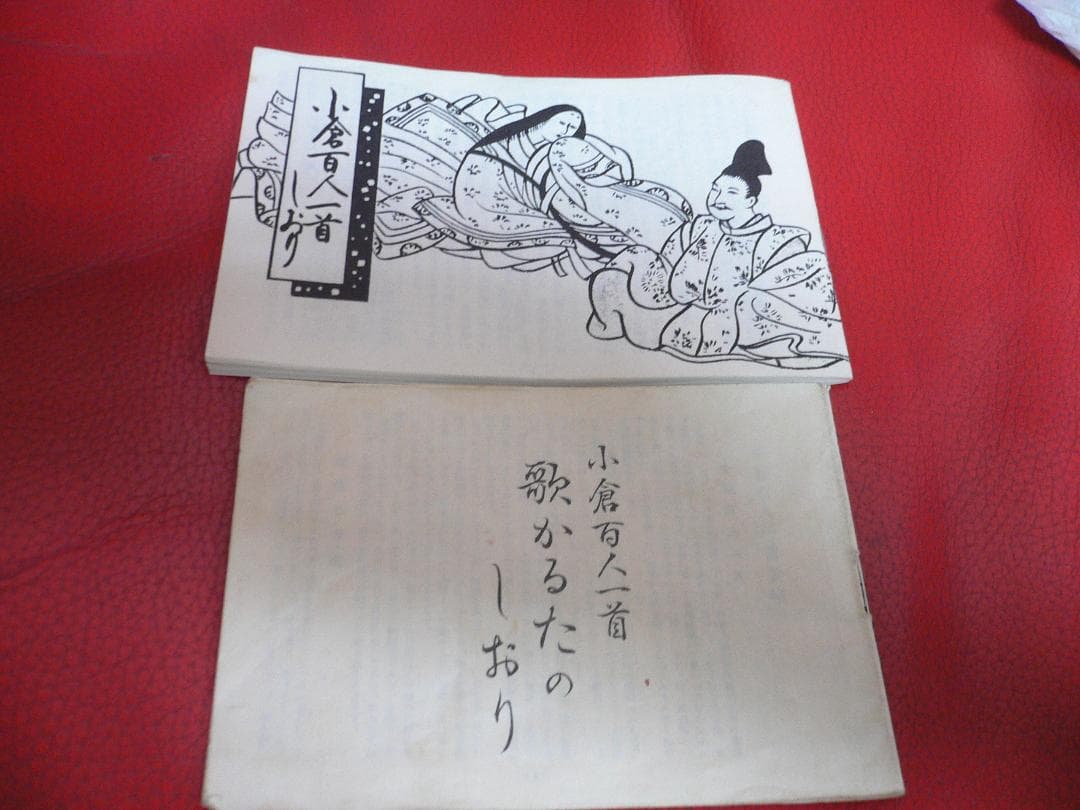 小倉百人一首
しおり
小倉百人一首
歌かるたの
しおり